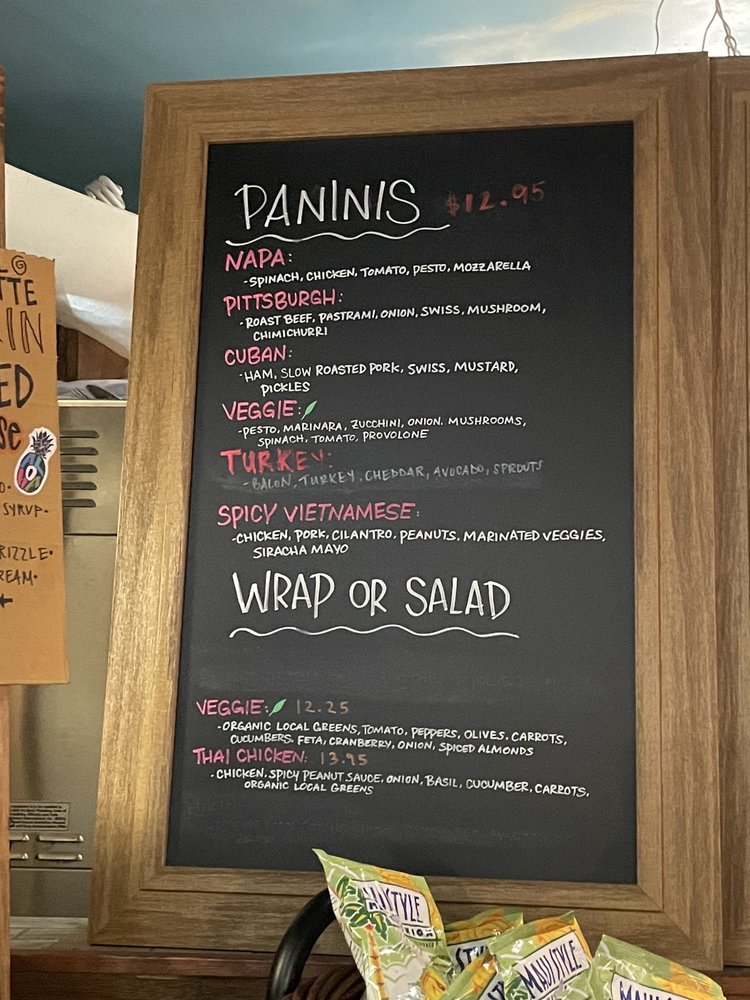 PANINIS $12.95
NAPA:
-SPINACH, CHICKEN, TOMATO, PESTO, MOZZARELLA
PITTSBURGH:
-ROAST BEEF, PASTRAMI, ONION, SWISS, MUSHROOM,
CHIMICHURRI
CUBAN:
-HAM, SLOW ROASTED PORK, SWISS, MUSTARD,
PICKLES
VEGGIE:
-PESTO, MARINARA, ZUCCHINI, ONION. MUSHROOMS,
SPINACH, TOMATO, PROVOLONE
TURKEY:
-BACON, TURKEY, CHEDDAR, AVOCADO, SPROUTS
SPICY VIETNAMESE:
-CHICKEN, PORK, CILANTRO, PEANUTS. MARINATED VEGGIES,
SIRACHA MAYO
WRAP OR SALAD
VEGGIE: 12.25
-ORGANIC LOCAL GREENS, TOMATO, PEPPERS, OLIVES. CARROTS,
CUCUMBERS. FETA, CRANBERRY, ONION, SPICED ALMONDS
THAI CHICKEN: 13.95
-CHICKEN, SPICY PEANUT SAUCE, ONION, BASIL, CUCUMBER, CARROTS,
ORGANIC LOCAL GREENS
TTE
IN
ED
se
SYRUP.
RIZZLE.
REAM.
STYLE
MAUI STYLE
MAUI